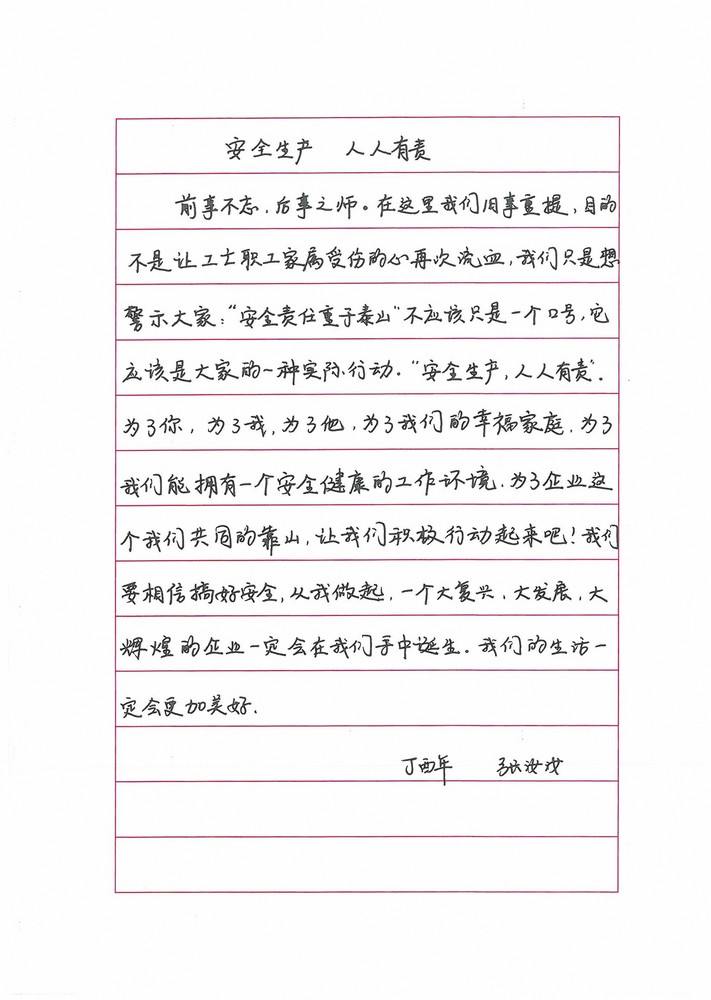 安全生产 人人有责
前事不忘，后事之师。在这里我们旧事重提，目的
不是让工士职工家属受伤的心再次流血，我们只是想
警示大家：“安全责任重于泰山”不应该只是一个口号，它
应该是大家的一种实际行动．“安全生产，人人有责”．
为了你，为了我，为了他，为了我们的幸福家庭．为了
我们能拥有一个安全健康的工作环境．为了企业这
个我们共同的靠山，让我们积极行动起来吧！我们
要相信搞好安全，从我做起，一个大复兴、大发展，大
辉煌的企业一定会在我们手中诞生．我们的生活一
定会更加美好．
丁酉年 张汝汝